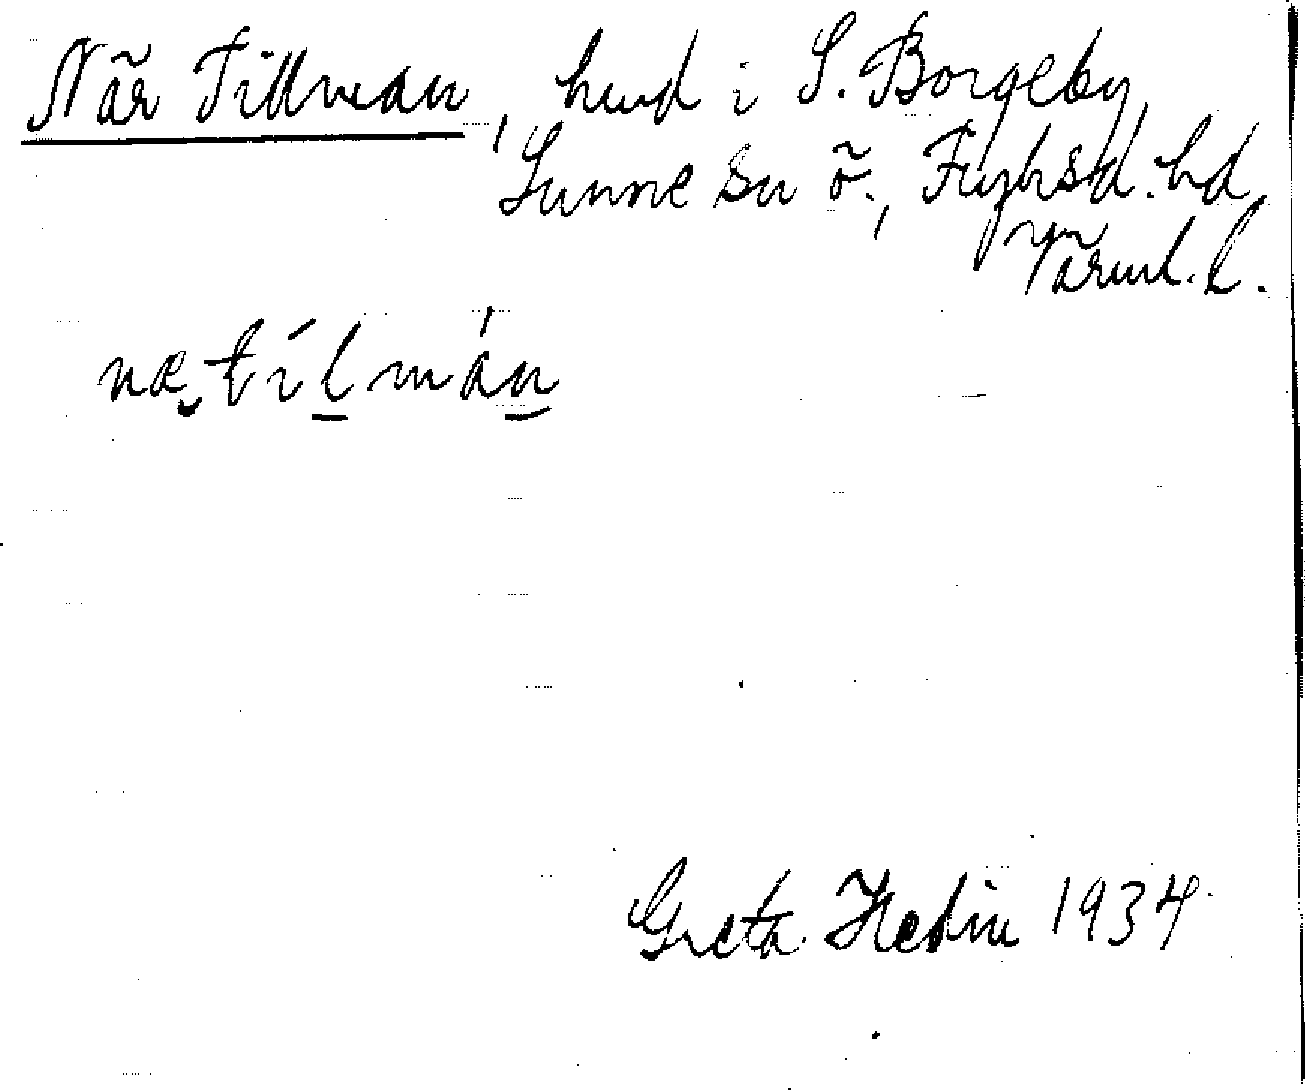 När Tillman, hmd i S. Borgeby,
Sunne sn ö., Fryksd. hd,
Värml. l.
næ tíl mán
Greta Hedin 1934